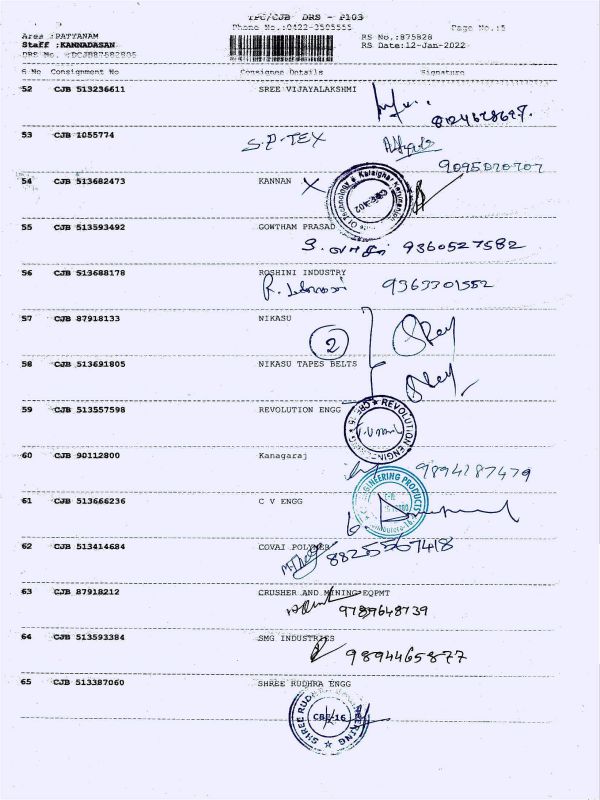 TPC/CJB DRS - P103
Phone No.:0422-3505555
Page No.:5
Area :PATTANAM
Staff :KANNADASAN
DRS No. :DCJB87682806
RS No.:875828
RS Date:12-Jan-2022
S No Consignment No Consignee Details Signature
52 CJB 513236611 SREE VIJAYALAKSHMI
8124628697.
53 CJB 1055774
S.P. TEX
9095020707
54 CJB 513682473 KANNAN
Of Technology ★ Kalaignar Karunanidhi
55 CJB 513593492 GOWTHAM PRASAD
9360527582
56 CJB 513688178 ROSHINI INDUSTRY
9363301552
57 CJB 87918133 NIKASU
2
58 CJB 513691805 NIKASU TAPES BELTS
59 CJB 513557598 REVOLUTION ENGG
★ REVOLUTION ENGIN
CBE-15
60 CJB 90112800 Kanagaraj
9894287479
61 CJB 513666236 C V ENGG
ENGINEERING PRODUCTS
62 CJB 513414684 COVAI POLYMER
88255567418
63 CJB 87918212 CRUSHER AND MINING EQPMT
9789648739
64 CJB 513593384 SMG INDUSTRIES
9894465877
65 CJB 513387060 SHREE RUDHRA ENGG
SHREE RUDHRA ENGINEERING
CBE-16